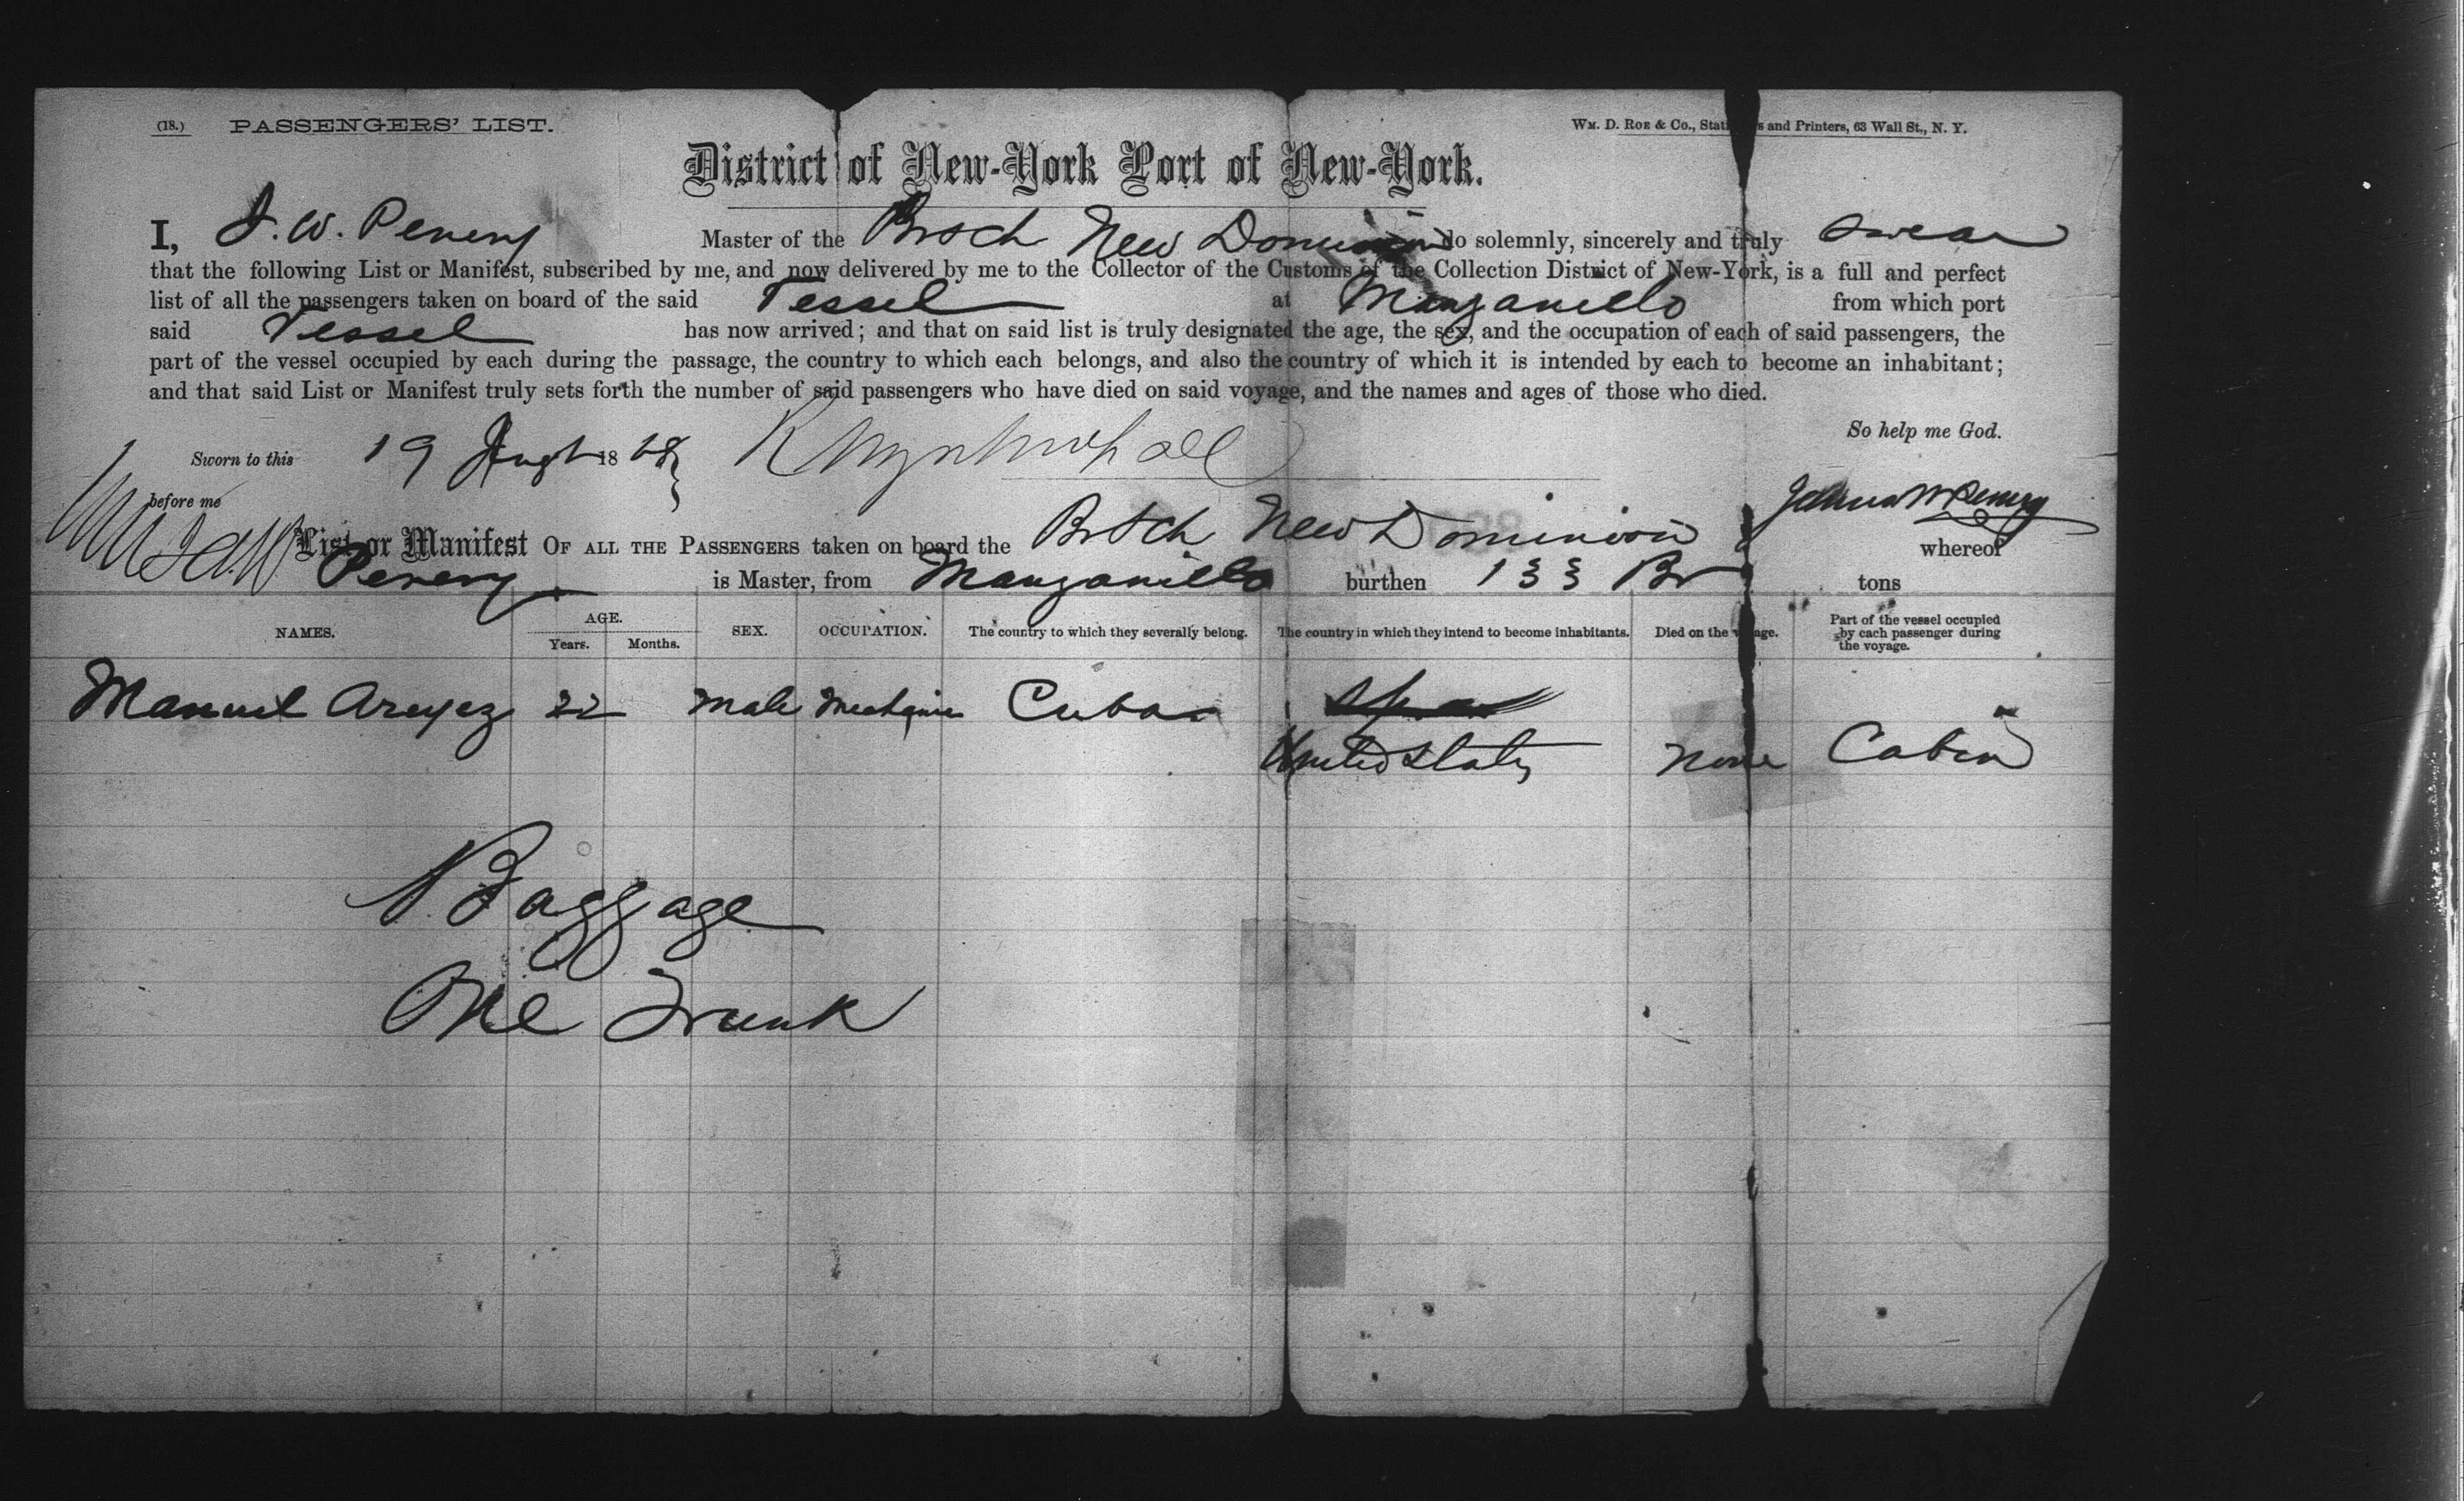 (18.) PASSENGERS' LIST. WM. D. ROE & Co., Stati s and Printers, 63 Wall St., N. Y.
District of New-York Port of New-York.
I, J. W. Penery Master of the Br Sch New Dominion do solemnly, sincerely and truly swear
that the following List or Manifest, subscribed by me, and now delivered by me to the Collector of the Customs of the Collection District of New-York, is a full and perfect
list of all the passengers taken on board of the said Vessel at Manzanillo from which port
said Vessel has now arrived; and that on said list is truly designated the age, the sex, and the occupation of each of said passengers, the
part of the vessel occupied by each during the passage, the country to which each belongs, and also the country of which it is intended by each to become an inhabitant;
and that said List or Manifest truly sets forth the number of said passengers who have died on said voyage, and the names and ages of those who died.
So help me God.
Sworn to this 19 Augt 1868
before me
List or Manifest OF ALL THE PASSENGERS taken on board the Br Sch New Dominion whereof
Penery is Master, from Manzanillo burthen 133 Br tons
NAMES. AGE. Years. Months. SEX. OCCUPATION. The country to which they severally belong. The country in which they intend to become inhabitants. Died on the v age. Part of the vessel occupied by each passenger during the voyage.
Manuel 22 male Mechanic Cuba
United States None Cabin
Baggage
One Trunk